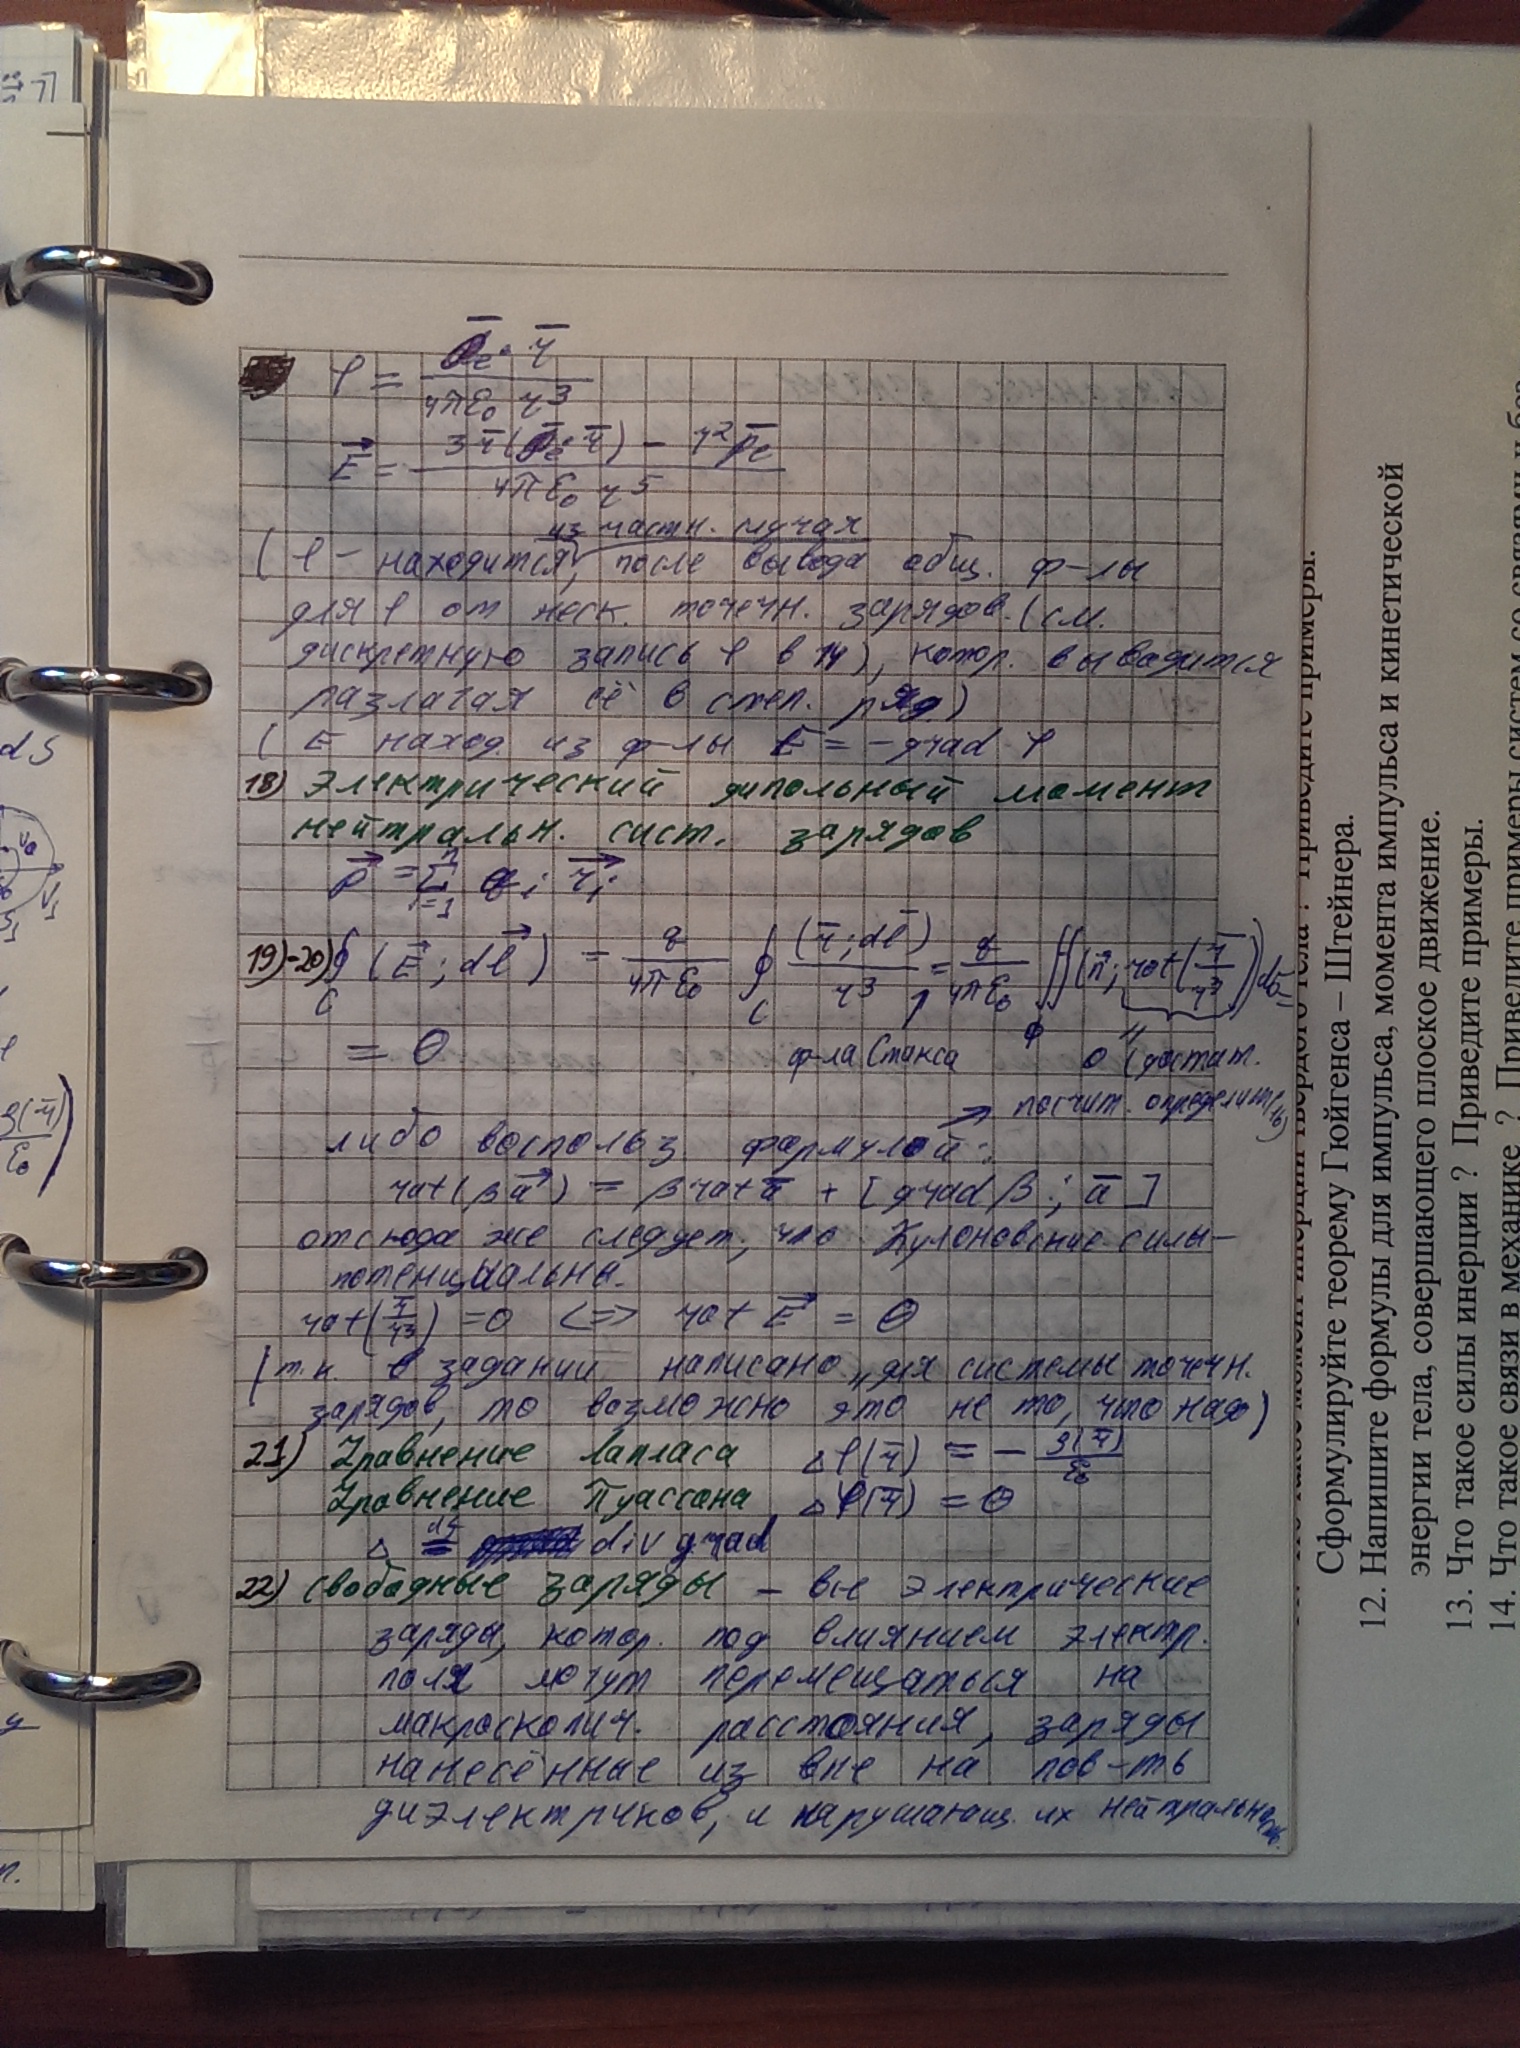 φ = p̄e · r̄ / 4πε₀ r³
E⃗ = 3r̄(p̄e · r̄) − r² p̄e / 4πε₀ r⁵
из частн. случая
( φ – находится, после вывода общ. ф-лы
для φ от неск. точечн. зарядов. (см.
дискретную запись φ в 14), котор. выводится
разлагая её в степ. ряд)
( E наход. из ф-лы E = −grad φ
18) Электрический дипольный момент
нейтральн. сист. зарядов
p⃗ = Σ qᵢ r⃗ᵢ
n
i=1
19)-20) ∮ (E⃗ ; dl⃗) = q / 4πε₀ ∮ (r̄ ; dl̄) / r³ = q / 4πε₀ ∬ (n⃗ ; rot (r̄ / r³)) dσ =
C C Φ
= 0 ф-ла Стокса 0 (достат.
посчит. определитель)
либо воспольз формулой:
rot(βa⃗) = β rot ā + [grad β ; ā]
отсюда же следует, что Кулоновские силы –
потенциальны.
rot(r̄ / r³) = 0 <=> rot E⃗ = 0
(т.к в задании написано „для системы точечн.
зарядов, то возможно это не то, что надо)
21) Уравнение Лапласа Δφ(r̄) = − ρ(r̄) / ε₀
Уравнение Пуассона Δφ(r̄) = 0
Δ = div grad
22) Свободные заряды – все электрические
заряды, котор. под влиянием электр.
поля могут перемещаться на
макроскопич. расстояния, заряды
нанесённые из вне на пов-ть
диэлектриков, и нарушающ. их нейтральность.
dS
ρ(r̄) / ε₀
V₁
S₁
Сформулируйте теорему Гюйгенса – Штейнера.
12. Напишите формулы для импульса, момента импульса и кинетической
энергии тела, совершающего плоское движение.
13. Что такое силы инерции ? Приведите примеры.
14. Что такое связи в механике ? Приведите примеры систем со связями и без